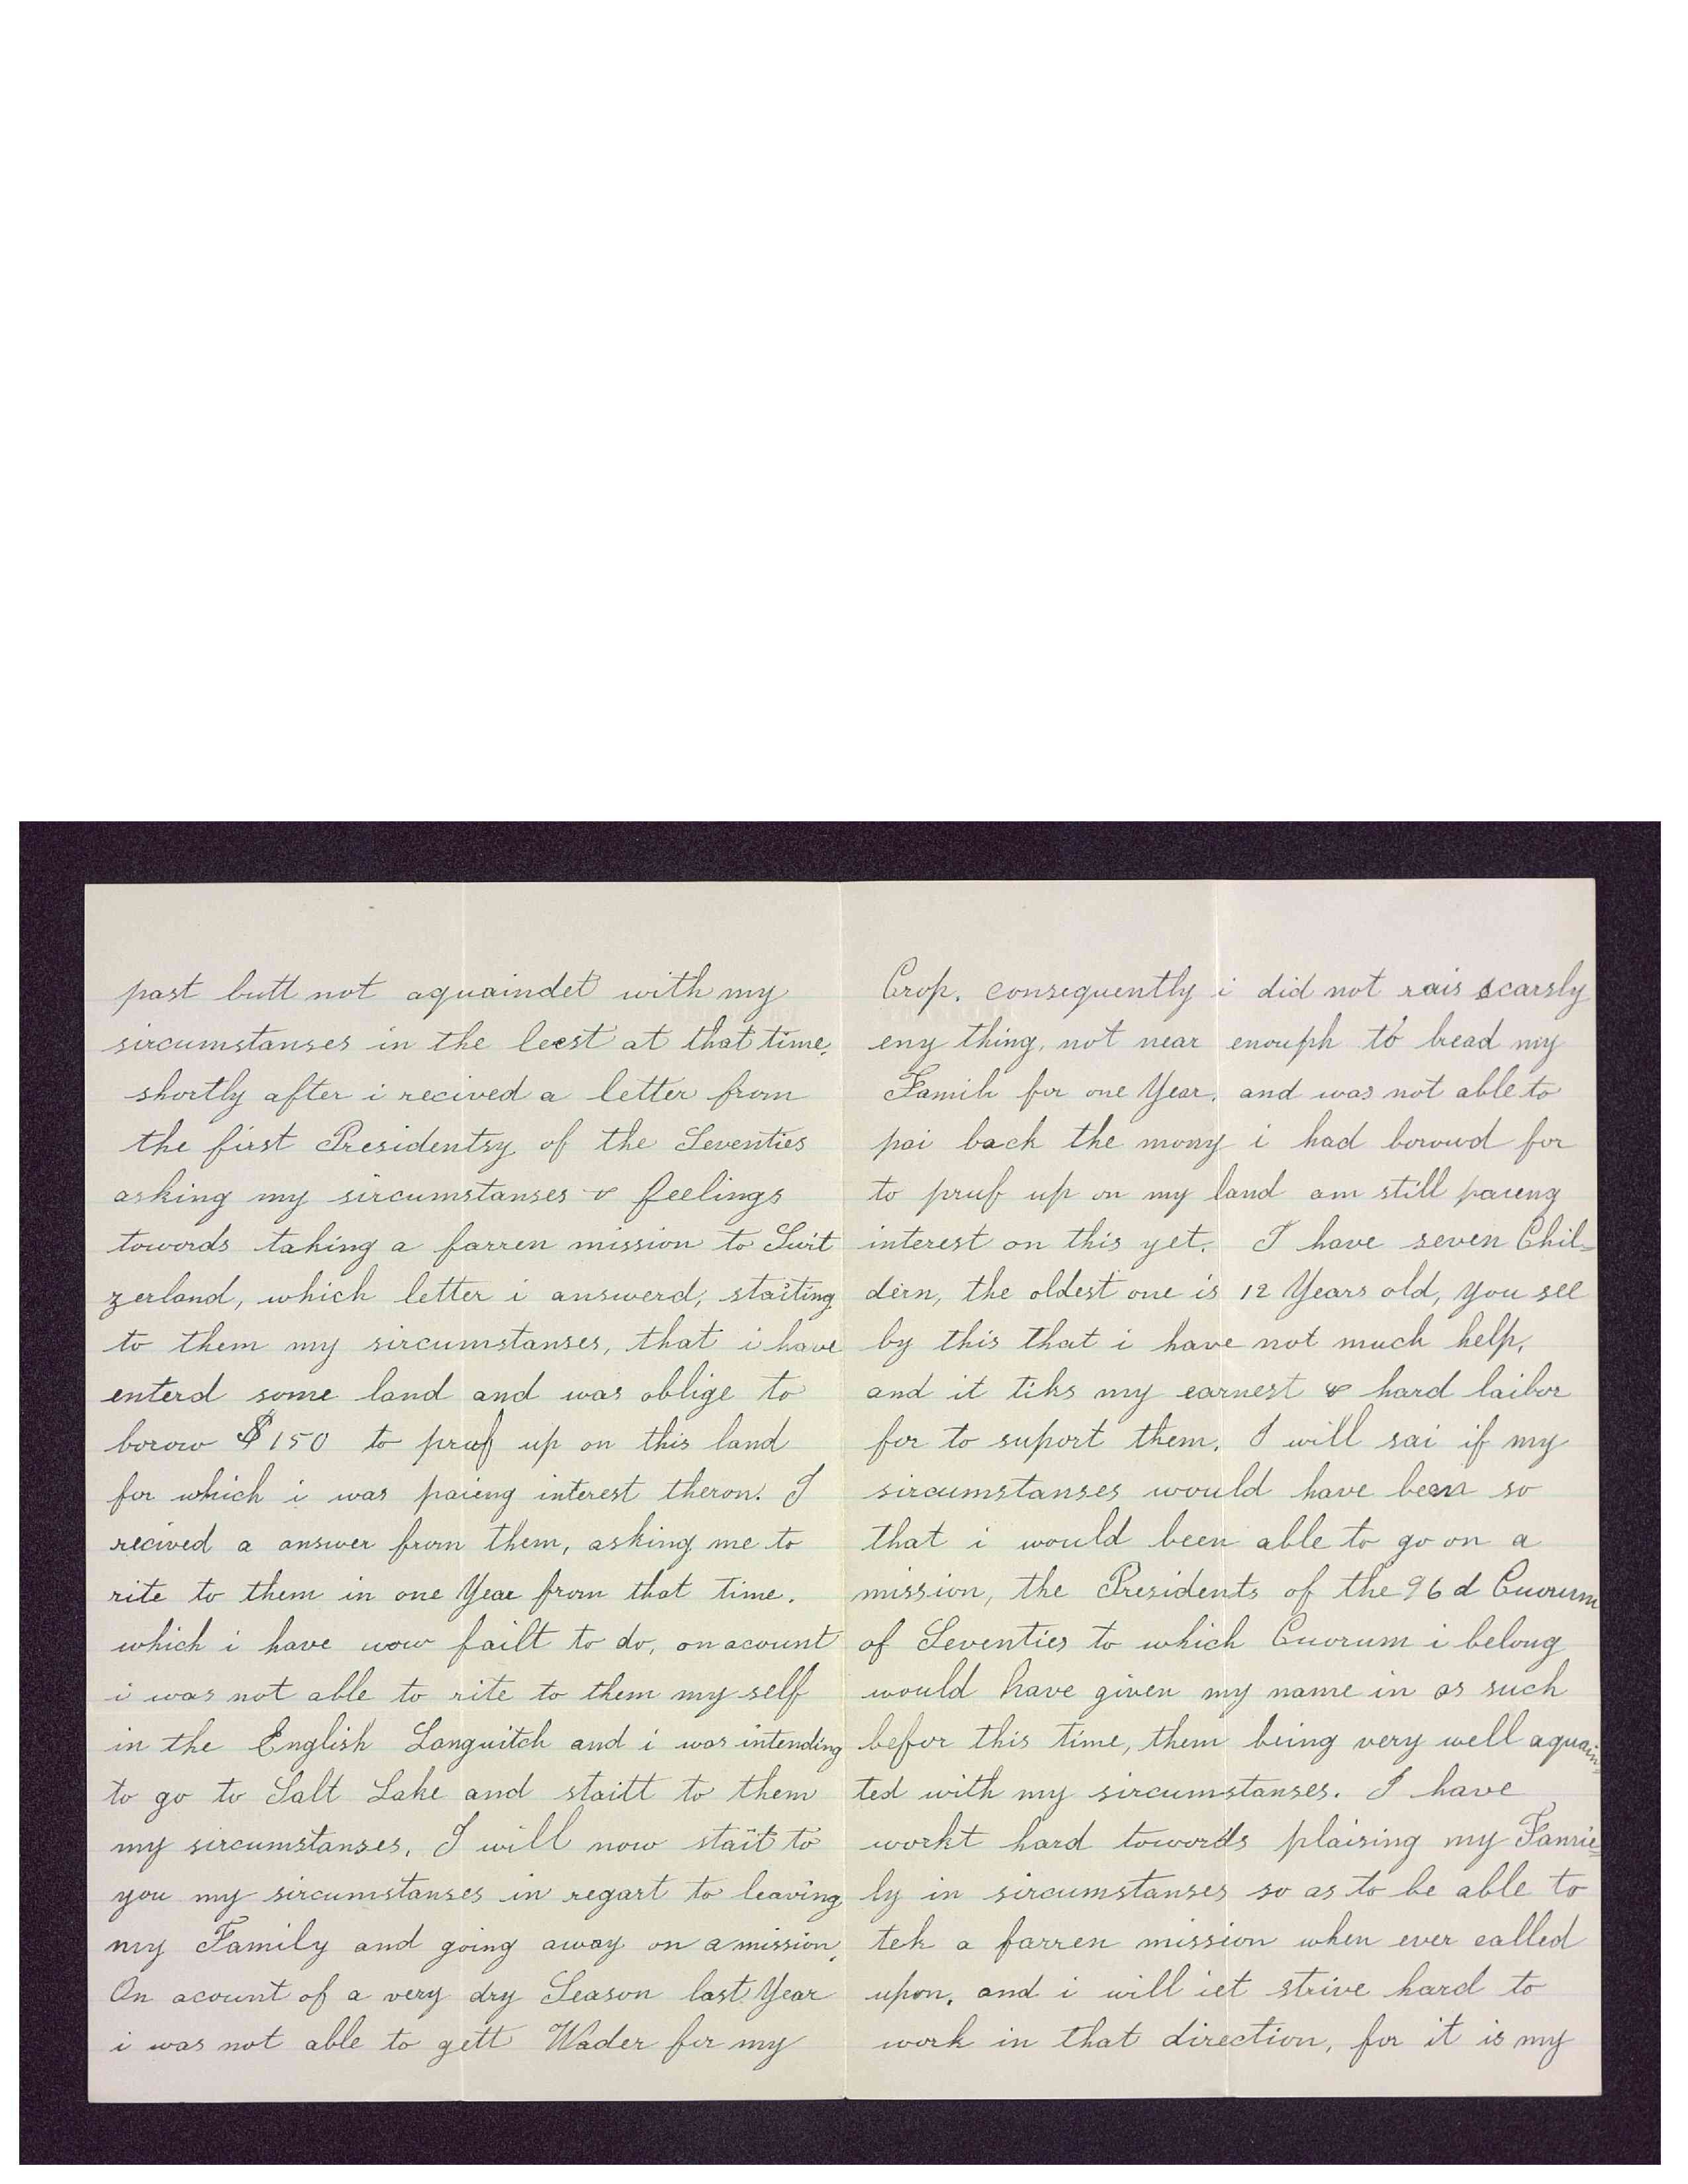 past butt not aquaindet with my
sircumstanses in the leest at that time.
shortly after i recived a letter from
the first Presidentsy of the Seventies
asking my sircumstanses & feelings
towords taking a farren mission to Swit
zerland, which letter i answerd, staiting
to them my sircumstanses, that i have
enterd some land and was oblige to
borow $150 to pruf up on this land
for which i was paieng interest theron. I
recived a answer from them, asking me to
rite to them in one Year from that time.
which i have now failt to do, on acount
i was not able to rite to them my self
in the English Languitch and i was intending
to go to Salt Lake and staitt to them
my sircumstanses. I will now stait to
you my sircumstanses in regart to leaving
my Family and going away on a mission.
On acount of a very dry Season last Year
i was not able to gett Wader for my
Crop. consequently i did not rais scarsly
eny thing, not near enouph to bread my
Famili for one Year. and was not able to
pai back the mony i had borowd for
to pruf up on my land am still paieng
interest on this yet. I have seven Chil=
dern, the oldest one is 12 Years old, you see
by this that i have not much help,
and it tiks my earnest & hard laibor
for to suport them. I will sai if my
sircumstanses would have been so
that i would been able to go on a
mission, the Presidents of the 96 d Cuorum
of Seventies to which Cuorum i belong
would have given my name in as such
befor this time, them being very well aquain=
ted with my sircumstanses. I have
workt hard towords plaising my Famie=
ly in sircumstanses so as to be able to
tek a farren mission when ever called
upon, and i will iet strive hard to
work in that direction, for it is my